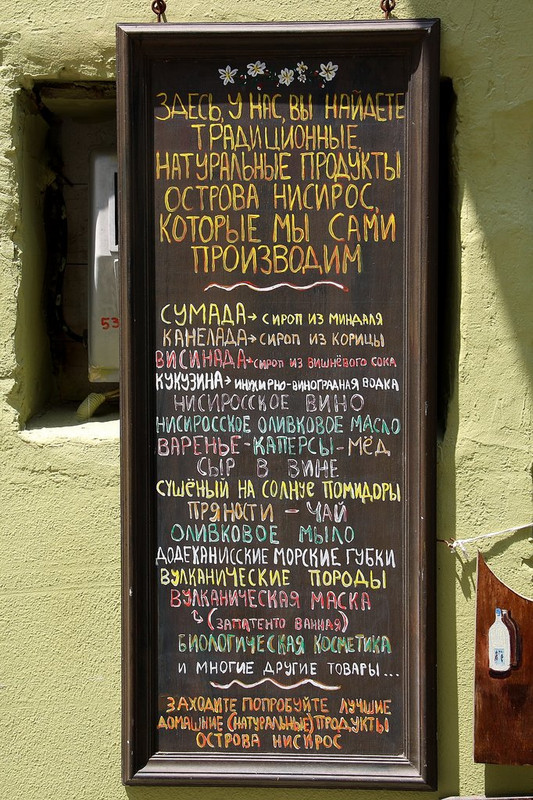 ЗДЕСЬ, У НАС, ВЫ НАЙДЕТЕ
ТРАДИЦИОННЫЕ,
НАТУРАЛЬНЫЕ ПРОДУКТЫ
ОСТРОВА НИСИРОС,
КОТОРЫЕ МЫ САМИ
ПРОИЗВОДИМ
СУМАДА→ СИРОП ИЗ МИНДАЛЯ
КАНЕЛАДА→ СИРОП ИЗ КОРИЦЫ
ВИСИНАДА→СИРОП ИЗ ВИШНЁВОГО СОКА
КУКУЗИНА→ИНЖИРНО-ВИНОГРАДНАЯ ВОДКА
НИСИРОССКОЕ ВИНО
НИСИРОССКОЕ ОЛИВКОВОЕ МАСЛО
ВАРЕНЬЕ-КАПЕРСЫ-МЁД
СЫР В ВИНЕ
СУШЁНЫЙ НА СОЛНЦЕ ПОМИДОРЫ
ПРЯНОСТИ - ЧАЙ
ОЛИВКОВОЕ МЫЛО
ДОДЕКАНИССКИЕ МОРСКИЕ ГУБКИ
ВУЛКАНИЧЕСКИЕ ПОРОДЫ
ВУЛКАНИЧЕСКАЯ МАСКА
(ЗАПАТЕНТО ВАННАЯ)
БИОЛОГИЧЕСКАЯ КОСМЕТИКА
И МНОГИЕ ДРУГИЕ ТОВАРЫ...
ЗАХОДИТЕ ПОПРОБУЙТЕ ЛУЧШИЕ
ДОМАШНИЕ (НАТУРАЛЬНЫЕ) ПРОДУКТЫ
ОСТРОВА НИСИРОС
53